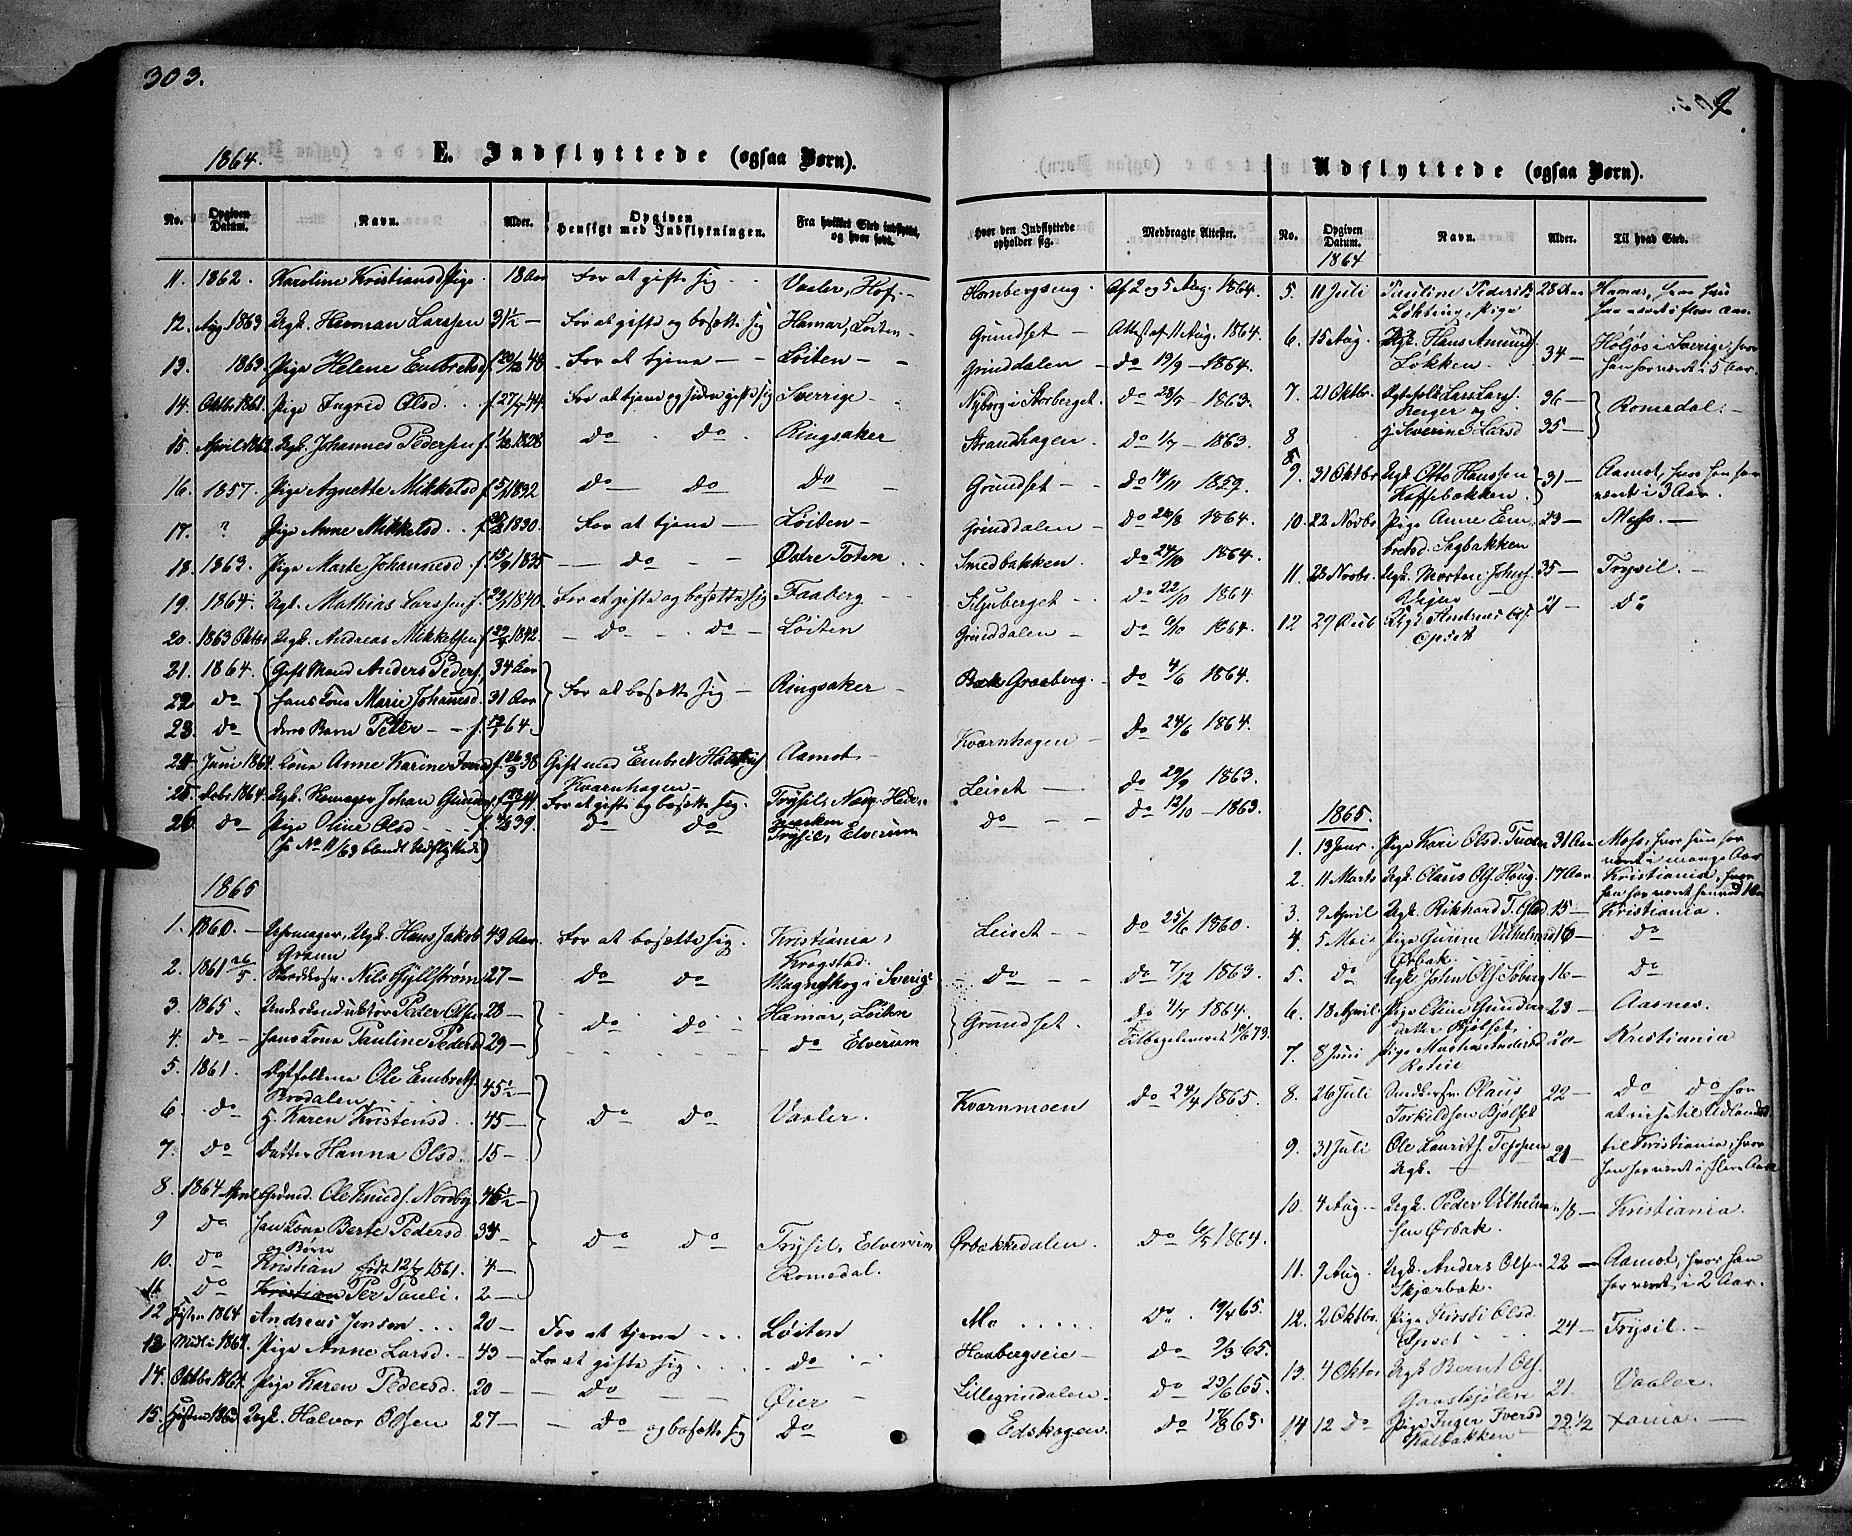 303.
1864.
E. Indflyttede (ogsaa Børn).
No. Opgiven Datum. Navn. Alder. Opgiven Hensigt med Indflytningen. Fra hvilket Sted indflyttet, og hvor født. Hvor den Indflyttede opholder sig. Medbragte Attester.
11. 1862. Karoline Kristiansd Pige. 18 Aar For at gifte sig Vaaler, Hof Hornbergseng. Af 2 og 5 Aug. 1864.
12. Aug 1863 Ungk. Herman Larssen 31½ For at gifte og bosætte sig Hamar, Løiten Grundset Attest af 11 Aug. 1864.
13. 1863 Pige Helene Embretsd For at tjene Løiten Grinddalen do 19/9 1864.
14. Oktbr 1861 Pige Ingrid Olsd. f. 27/7 44 For at tjene og siden gifte sig Sverrige Nyborg i Storberget. do 23/7 1863.
15. April 1862 Ungk. Johannes Pedersen f. 1828 do do Ringsaker Strandhagen do 1/7 1863.
16. 1857. Pige Agnette Mikkelsd 1832 do do do Grundset do 14/11 1859.
17. ? Pige Anne Mikkelsd. 1830 For at tjene Løiten Grinddalen do 1864.
18. 1863. Pige Marte Johannesd 1835 do Østre Toten Smedbakken do 24/10 1864.
19. 1864. Ungk. Mathias Larssen 1840 For at gifte og bosætte sig Faaberg Stjuberget do 22/10 1864
20. 1863 Oktbr Ungk. Andreas Mikkelsen 1842 do do Løiten Grinddalen do 6/10 1864.
21. 1864. Gift Mand Anders Peders. 34 Aar
22. do hans Kone Marie Johannesd. 31 Aar For at bosætte sig Ringsaker Bak Graaberg. do 4/6 1864.
23. do deres Barn Peter 64.
24. Juni 1864. Kone Anne Karine Iversd f. 26/3 38 Gift med Embret Kvarnhagen Aamot Kvarnhagen do 24/6 1864.
25. Debr 1864. Ungk. Johan Gunders. 44 For at gifte og bosætte sig. Trysil, Leiset do 29/9 1863.
26. do Pige Oline Olsd 39. do do Trysil, Elverum do do 12/10 1863.
(se No 11/63 blandt Udflyttede)
1865
1. 1860. Ungk. Hans Jakob Grønn 43 Aar. For at bosætte sig. Kristiania, Krogstad. Leiset do 25/6 1860.
2. 1861 26/5 Nils Gyllstrøm 27 do do Magneskog i Sverig do do 7/12 1863.
3. 1865 Peter Olsen 28 do do Hamar, Løiten Grundset. do 4/7 1864.
4. do hans Kone Pauline Pedersd 29 do Elverum Tilbageleveret 10/6 73.
5. 1861. Ægtefolkene Ole Embrets. 45½
6. do Karen Kristensd. 45 do do Vaaler. Kvarnmoen do 24/4 1865.
7. do Datter Hanna Olsd. 15
8. 1864 April Ole Knuds. Nordby 46½
9 do hans Kone Berte Pedersd 35 do do Trysil, Elverum Ørbækkedalen. do 6/5 1864.
og Børn
10. do Kristian født 12/7 1861. 4 Romedal.
11 do Per Pauli. 2
12 Høsten 1864 Andreas Jensen 20 For at tjene Løiten Mo do 19/4 65.
13 1864. Pige Anne Larsd. 43 For at gifte sig do Haabergseie do 2/3 65.
14. Oktbr 1864. Pige Karen Pedersd. 20 do Øier Lillegrindalen. do 23/6 65.
15. Høsten 1863 Ungk. Halvor Olsen 27 do og bosætte sig do Edskogen. do 17/8 65.
Udflyttede (ogsaa Børn).
No. Opgiven Datum. Navn. Alder. Til hvad Sted.
1864
5. 11 Juli Pauline Pedersd. Pige 28 Aar Hamar, hvor hun har været i flere Aar.
6. 15 Aug. Ungk. Hans Amunds. Løkken 34 Høljøs i Sverige, hvor han har været i 5 Aar.
7. 21 Oktbr. Ægtefolk Lars Lars. og 36 Romedal.
8 Severine Larsd 35
9. 31 Oktbr Ungk. Otto Hanssen Kaffebakken. 31 Aamot, hvor han har været i 3 Aar.
10. 22 Novbr Pige Anne Embretsd. Sagbakken 23 Moss.
11. 23 Novbr. Ungk. Morten Johns. 35 Trysil.
12 29 Ungk. Andreas Ols. Opset 21 do
1865.
1. 13 Janr. Pige Kari Olsd. 31 Aar Moss, hvor hun har været i mange Aar
2. 11 Marts Ungk. Olaus Ols. Houg. 17 Aar Kristiania, hvor
3. 9 April Ungk. Rikhard T. 15 Kristiania.
4. 5 Mai Pige Gurine Vilhelmsd Ørbak. 16 do
5. do Ungk. John Ols. Søberg 16 do
6. 18 April Pige Oline Gunders datter Bjølset 23 Aasnes.
7. 8 Juni Pige Andersd 20 Kristiania
8. 26 Juli Olaus Torkildsen Bjølset 22 do do for at reise til Udlandet
9. 31 Juli Ole Laurits. Teppen Ungk. 21 til Kristiania, hvor han har været i flere Aar
10. 4 Aug. Ungk. Peder Vilhelmsen Ørbak. 18 Kristiania
11. 9 Aug. Ungk. Anders Olsen Skjærbak. 22 Aamot, hvor han har været i 2 Aar.
12. 2 Oktbr. Pige Kirsti Olsd Opset 24 Trysil.
13. 4 Oktbr Ungk Bernt Ols. 21. Vaaler.
14 12 do Pige Inger Iversd Kalbakken 22.½